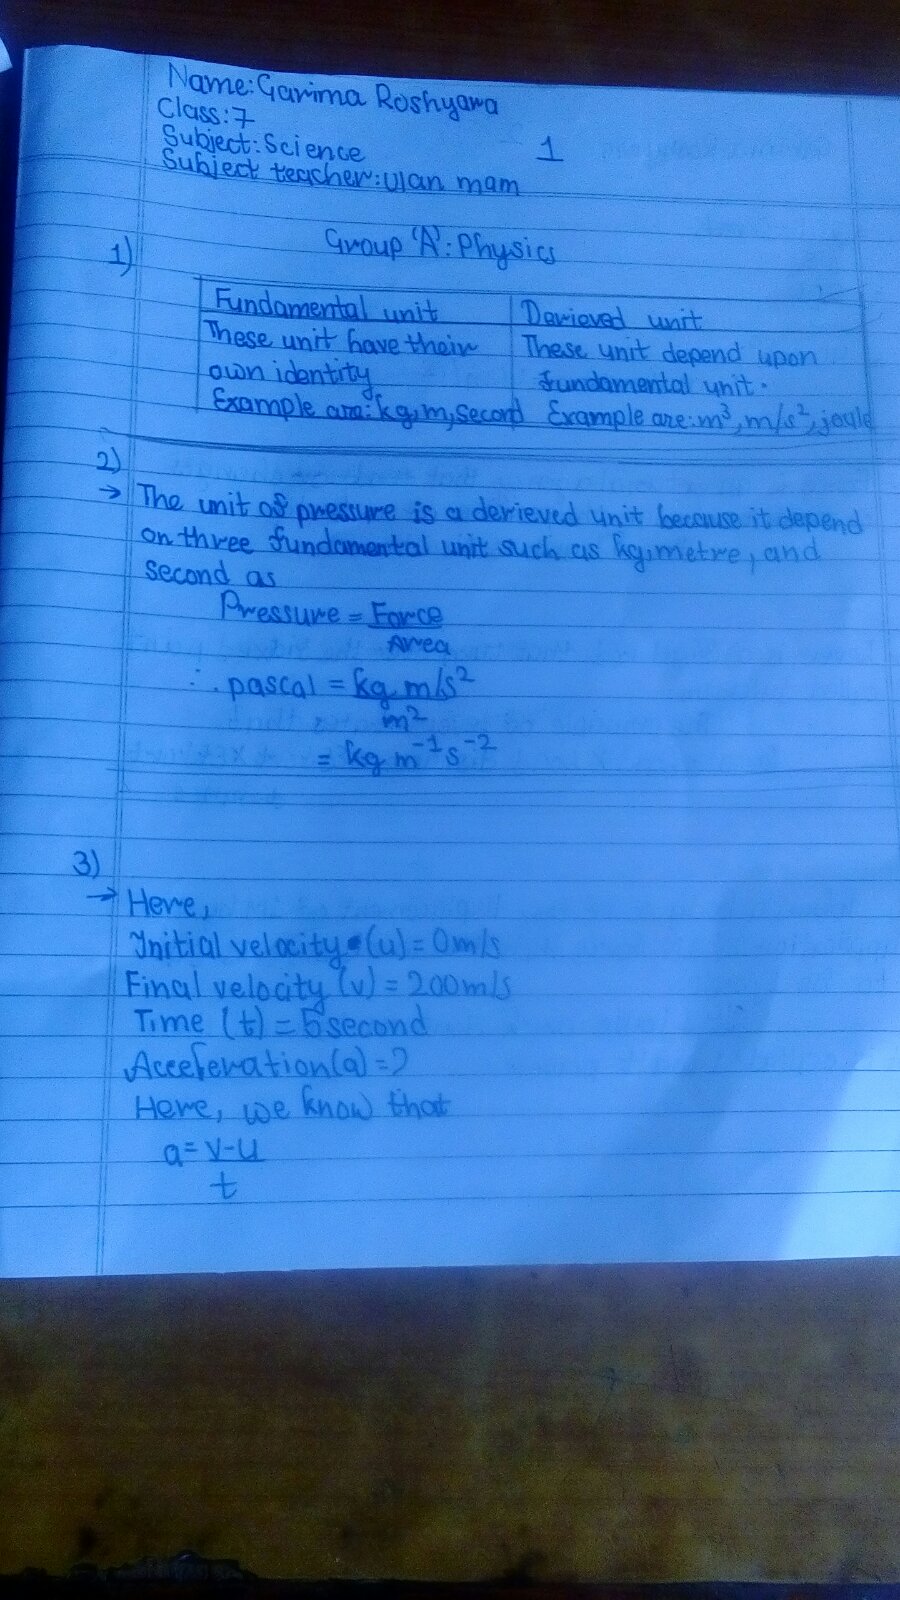 Name: Garima Roshyara
Class: 7
Subject: Science
1
Subject teacher: Ujan mam
Group 'A': Physics
1)
Fundamental unit
Derieved unit
These unit have their
These unit depend upon
own identity
fundamental unit.
Example are: kg, m, second
Example are: m³, m/s², joule
2)
→ The unit of pressure is a derieved unit because it depend
on three fundamental unit such as kg, metre, and
second as
Pressure = Force
Area
∴ pascal = kg m/s²
m²
= kg m⁻¹ s⁻²
3)
→ Here,
Initial velocity (u) = 0m/s
Final velocity (v) = 200m/s
Time (t) = 5 second
Acceleration (a) = ?
Here, we know that
a = v-u
t